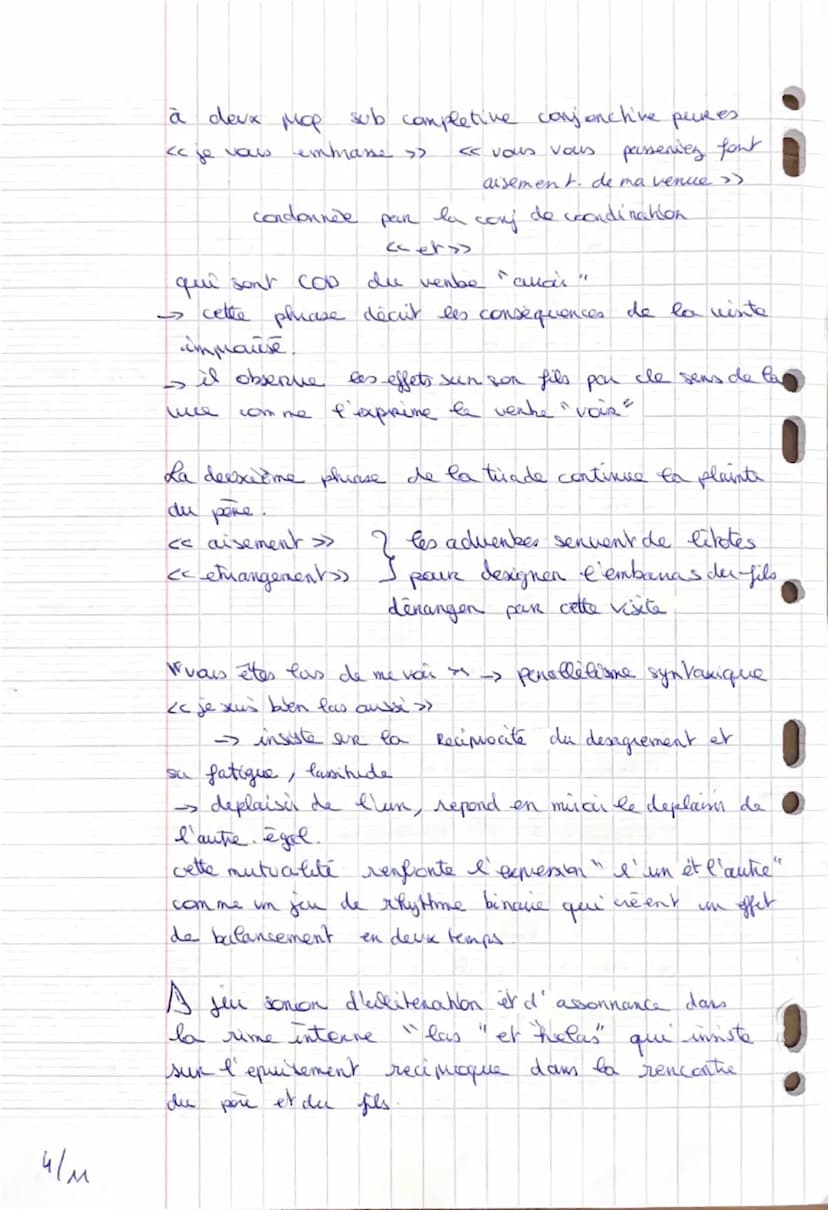 à deux prop sub completive conjonctive pures
<< je vous embrasse >> << vous vous passeriez fort
aisement. de ma venue >>
cordonnée par la conj de coordination
<< et >>
qui sont COD du verbe "avoir"
→ cette phrase décrit les conséquences de la visite
.
→ il observe les effets sur son fils par le sens de la
vue comme l'exprime le verbe "voir"
La deuxième phrase de la tirade continue la plainte
du père.
<< aisement >> } les adverbes servent de litotes
<< etrangement >> pour designer l'embarras du fils
déranger par cette visite
"vous êtes las de me voir >> → parallélisme syntaxique
<< je suis bien las aussi >>
→ insiste sur la reciprocité du desagrement et
sa fatigue, lassitude
→ deplaisir de l'un, repond en miroir le deplaisir de
l'autre. égal.
cette mutualité renforte l'expression "l'un et l'autre"
comme un jeu de rhythme binaire qui créent un effet
de balancement en deux temps.
jeu d'aliteration et d'assonnance dans
la rime interne "las" et "helas" qui insiste
sur l'epuisement reciproque dans la rencontre
du père et du fils.
4/11